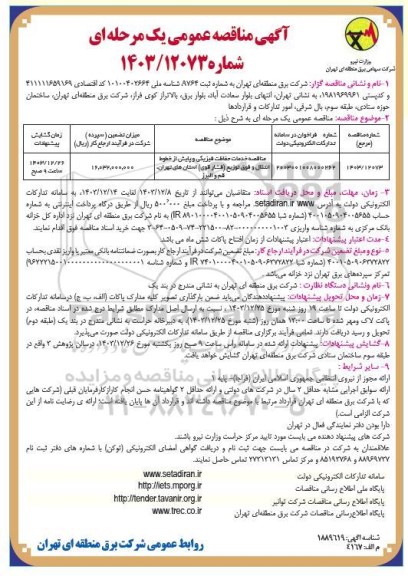 آگهی مناقصه عمومی یک مرحله ای
شماره ۱۴۰۳/۱۲۰۷۳
وزارت نیرو
شرکت سهامی برق منطقه ای تهران
۱- نام و نشانی مناقصه گزار: شرکت برق منطقه‌ای تهران به شماره ثبت ۹۷۶۴، شناسه ملی ۱۰۱۰۰۴۰۲۶۶۴ کد اقتصادی ۴۱۱۱۱۱۶۵۹۱۶۹
و کدپستی ۱۹۸۱۹۶۹۹۶۱، به نشانی تهران، انتهای بلوار سعادت آباد، بلوار برق، بالاتراز کوی فراز، شرکت برق منطقه‌ای تهران، ساختمان
حوزه ستادی، طبقه سوم، بال شرقی، امور تدارکات و قراردادها
۲- موضوع مناقصه: مناقصه عمومی یک مرحله ای به شرح ذیل :
شماره مناقصه (مرجع)
شماره فراخوان در سامانه تدارکات الکترونیکی دولت
موضوع مناقصه
میزان تضمین (سپرده) شرکت در فرآیند ارجاع کار (ریال)
زمان گشایش پیشنهادات
۱۴۰۳/۱۲۰۷۳
مناقصه خدمات حفاظت فیزیکی و پایش از خطوط انتقال و فوق توزیع (فشار قوی) استان های تهران، قم و البرز
۱۴۰۳/۱۲/۲۶ ساعت ۹ صبح
۳- زمان، مهلت، مبلغ و محل دریافت اسناد: متقاضیان می‌توانند از تاریخ ۱۴۰۳/۱۲/۸ لغایت ۱۴۰۳/۱۲/۱۴، به سامانه تدارکات
الکترونیکی دولت به آدرس www.setadiran.ir مراجعه و با پرداخت مبلغ ۵۰۰٬۰۰۰ ریال از طریق درگاه پرداخت اینترنتی به شماره
بانک مرکزی به شماره شناسه واریزی جهت خرید اسناد مناقصه فوق اقدام نمایند.
۴- مدت اعتبار پیشنهادات: اعتبار پیشنهادات از زمان افتتاح پاکات شش ماه می باشد.
۵- نوع و مبلغ تضمین شرکت در فرآیند ارجاع کار: مبلغ تضمین شرکت در فرآیند ارجاع کار به‌صورت ضمانتنامه بانکی معتبر یا واریز نقدی بحساب
تمرکز سپرده‌های برق تهران نزد خزانه می‌باشد
۶- نام ونشانی دستگاه نظارت : شرکت برق منطقه ای تهران به نشانی مندرج در بند یک
۷- زمان و محل تحویل پیشنهادات: پیشنهاددهندگان می‌باید ضمن بارگذاری تصویر کلیه مدارک پاکات (الف، ب، ج) درسامانه تدارکات
الکترونیکی دولت تا ساعت ۱۹ روز شنبه مورخ ۱۴۰۳/۱۲/۲۵، نسبت به ارسال اصل مدارک مطابق شرایط درج شده در اسناد مناقصه، در
پاکت لاک ومهر شده تا ساعت ۱۴:۰۰ همان روز (شنبه مورخ ۱۴۰۳/۱۲/۲۵)، به دبیرخانه حراست به نشانی مندرج در بند یک (طبقه دوم)
تحویل و رسید دریافت دارند. تمامی فرآیند برگزاری مناقصه از طریق سامانه تدارکات الکترونیکی دولت صورت می‌پذیرد.
۸- گشایش پیشنهادات: پیشنهادات ارائه شده در سامانه راس ساعت ۹ صبح روز یکشنبه مورخ ۱۴۰۳/۱۲/۲۶، درسالن پژوهش ۳ واقع در
طبقه سوم ساختمان ستادی شرکت برق منطقه‌ای تهران گشایش خواهد یافت.
۹- سایر شرایط :
ارائه مجوز از نیروی انتظامی جمهوری اسلامی ایران (فراجا)- پایه ۱
شرکت الزامی است.)
دارا بودن دفتر نمایندگی فعال در تهران
شرکت های پیشنهاد دهنده می بایست مورد تایید مرکز حراست وزارت نیرو باشند.
علاقمندان به شرکت در مناقصه می بایست جهت ثبت نام و دریافت گواهی امضای الکترونیکی (توکن) با شماره های دفتر ثبت نام
۸۸۹۶۹۷۳۷ و ۸۵۱۹۳۷۶۸ و مرکز تماس ۲۷۳۱۳۱۳۱ تماس حاصل نمایند.
سامانه تدارکات الکترونیکی دولت www.setadiran.ir
پایگاه ملی اطلاع رسانی مناقصات http://iets.mporg.ir
پایگاه اطلاع رسانی مناقصات شرکت توانیر http://tender.tavanir.org.ir
پایگاه اطلاع‌رسانی مناقصات شرکت برق منطقه‌ای تهران www.trec.co.ir
شناسه آگهی: ۱۸۸۹۶۱۹
م الف: ۴۱۶۷
روابط عمومی شرکت برق منطقه ای تهران